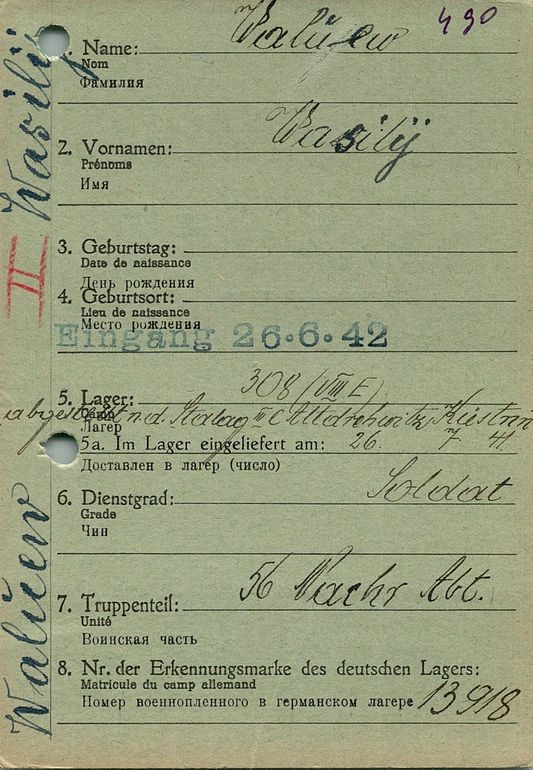 490
1. Name: Waliew
Nom
Фамилия
2. Vornamen: Wasilij
Prénoms
Имя
3. Geburtstag:
Date de naissance
День рождения
4. Geburtsort:
Lieu de naissance
Место рождения
Eingang 26.6.42
5. Lager: 308 (VIII E)
Camp
Лагерь
Stalag III C Altdrewitz Küstrin
5a. Im Lager eingeliefert am: 26. 7. 41.
Доставлен в лагерь (число)
6. Dienstgrad: Soldat
Grade
Чин
7. Truppenteil: 56 Nachr Abt.
Unité
Воинская часть
8. Nr. der Erkennungsmarke des deutschen Lagers:
Matricule du camp allemand
Номер военнопленного в германском лагере 13918
Waliew Wasilij
II